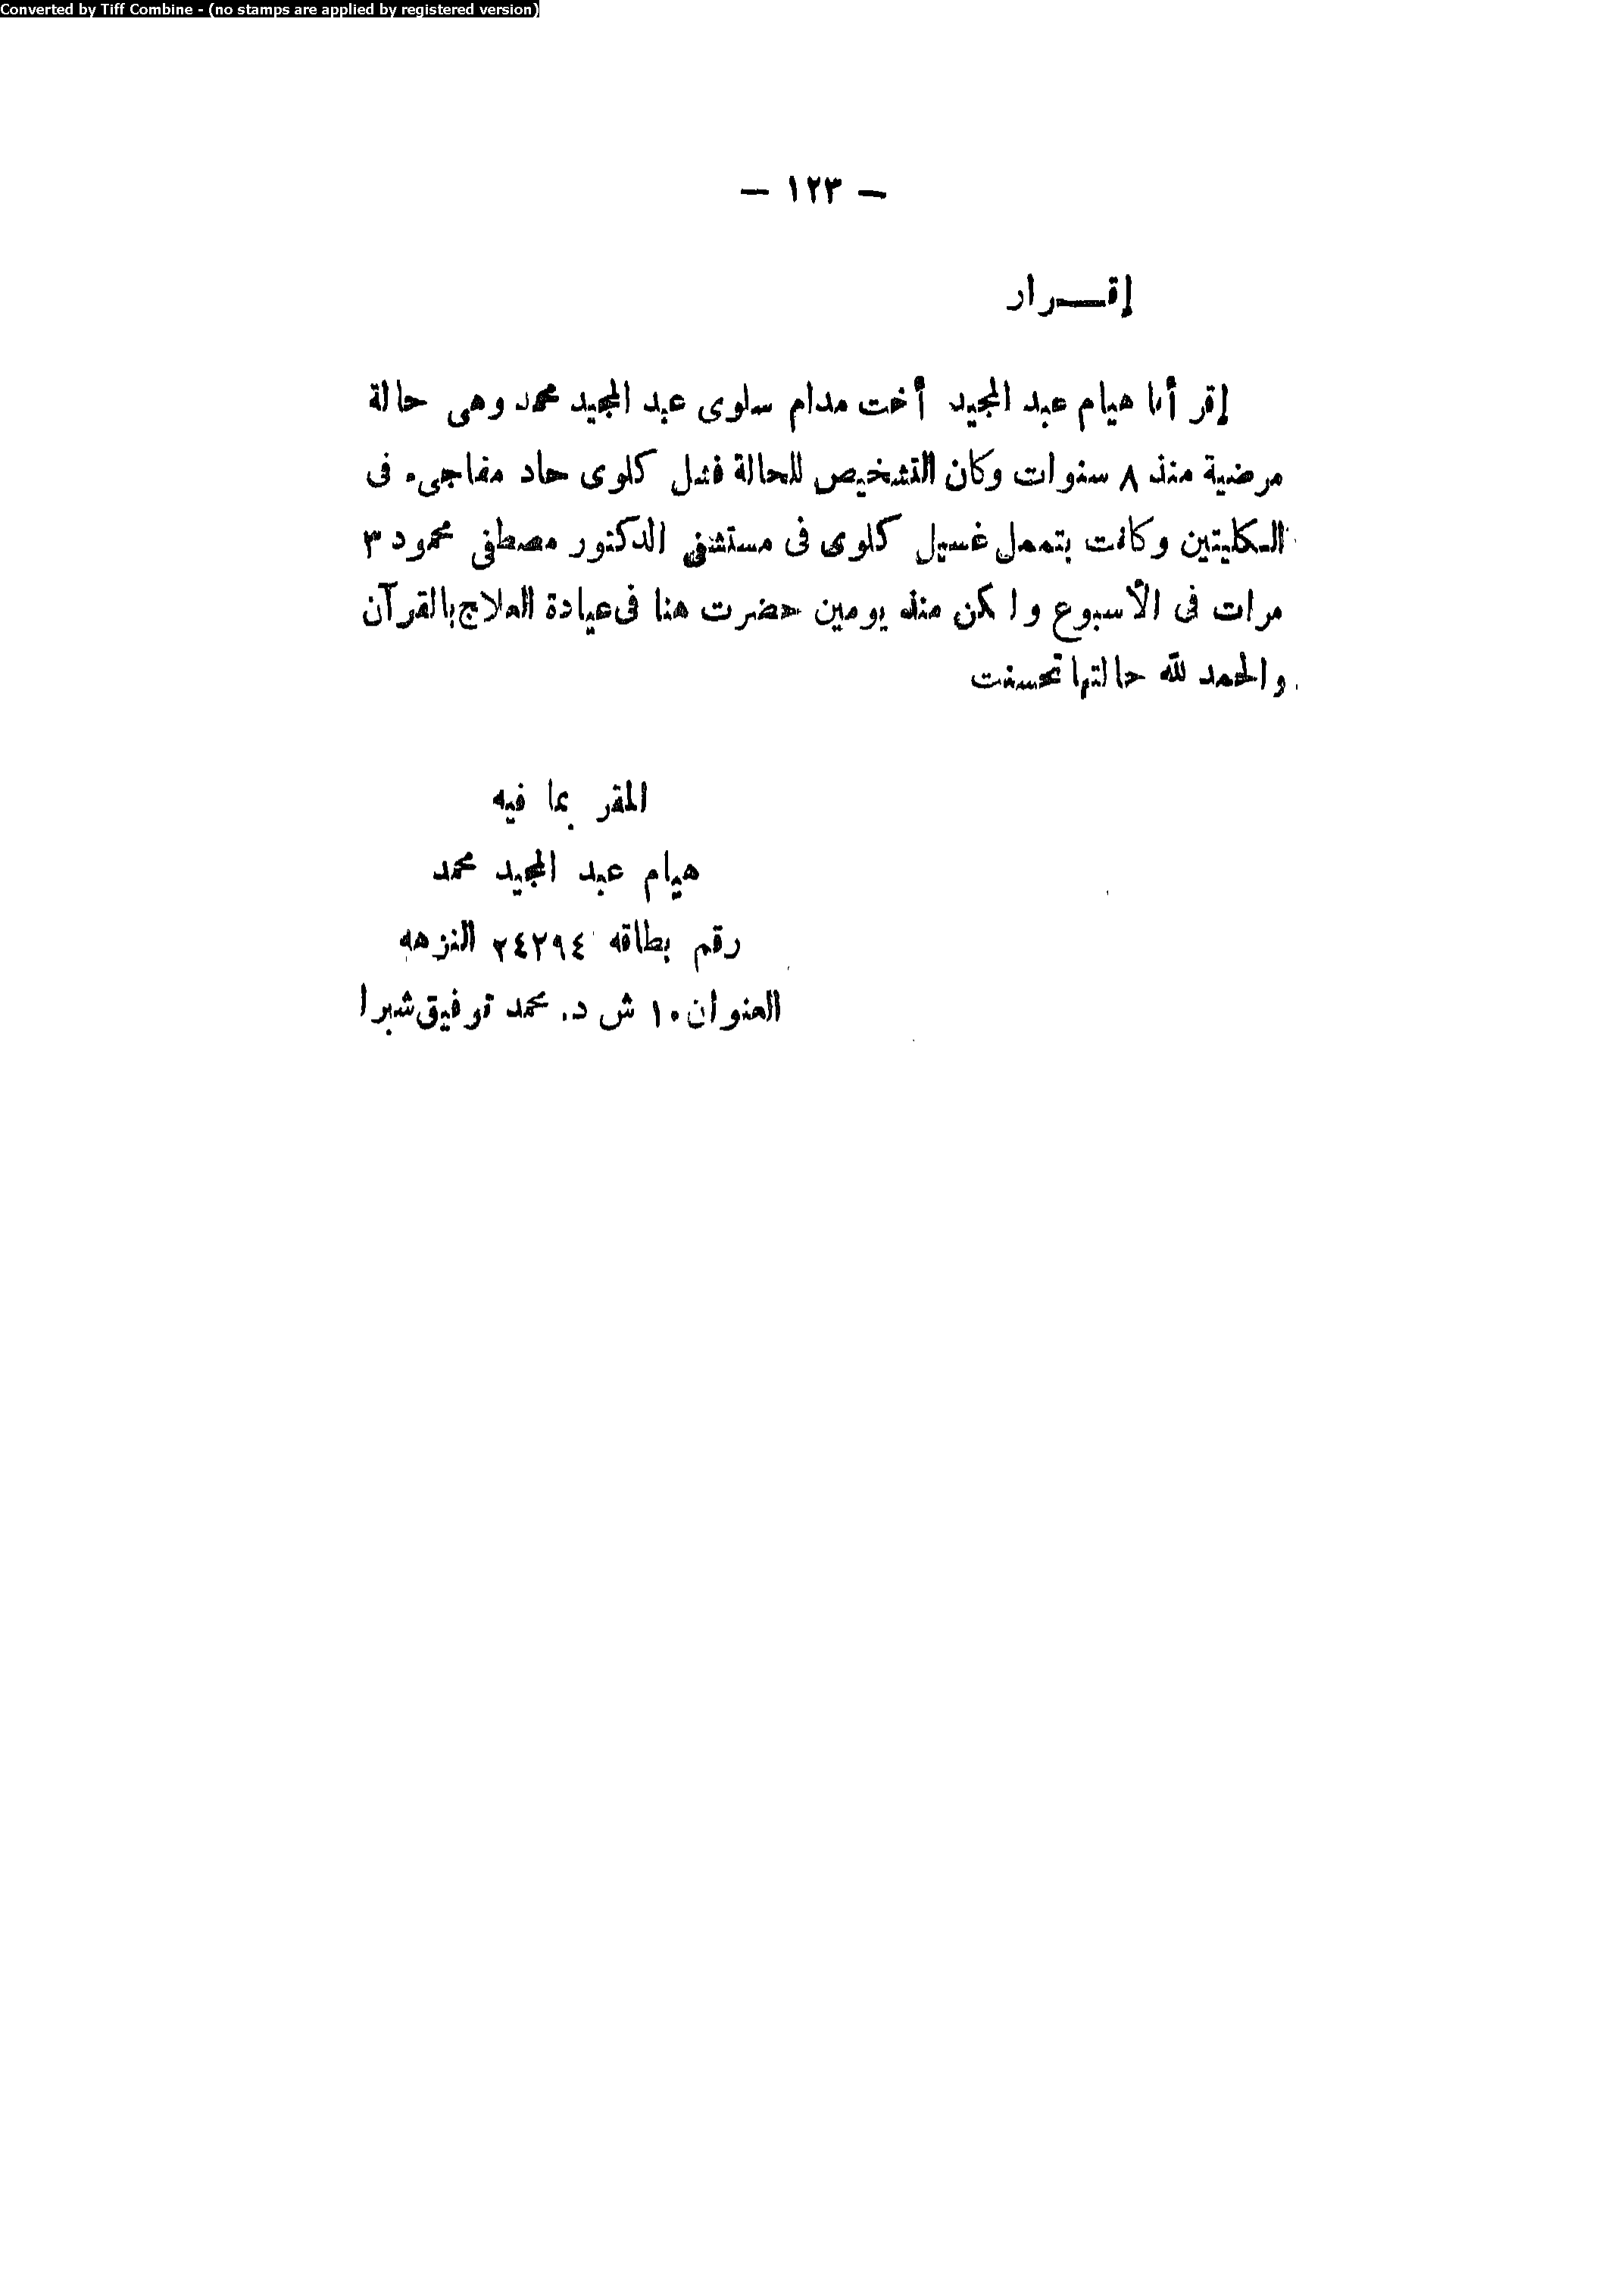 Converted by Tiff Combine - (no stamps are applied by registered version)
— ١٢٣ —
إقـــرار
إقر أنا هيام عبد المجيد أخت مدام سلوى عبد المجيد محمد وهى حالة
مرضية منذ ٨ سنوات وكان التشخيص للحالة فشل كلوى حاد مفاجىء فى
الكليتين وكانت بتعمل غسيل كلوى فى مستشفى الدكتور مصطفى محمود ٣
مرات فى الأسبوع ولكن منذ يومين حضرت هنا فى عيادة العلاج بالقرآن
والحمد لله حالتها تحسنت
المقر بما فيه
هيام عبد المجيد محمد
رقم بطاقه ٢٤٢٩٤ النزهه
العنوان ١٠ ش د. محمد توفيق شبرا